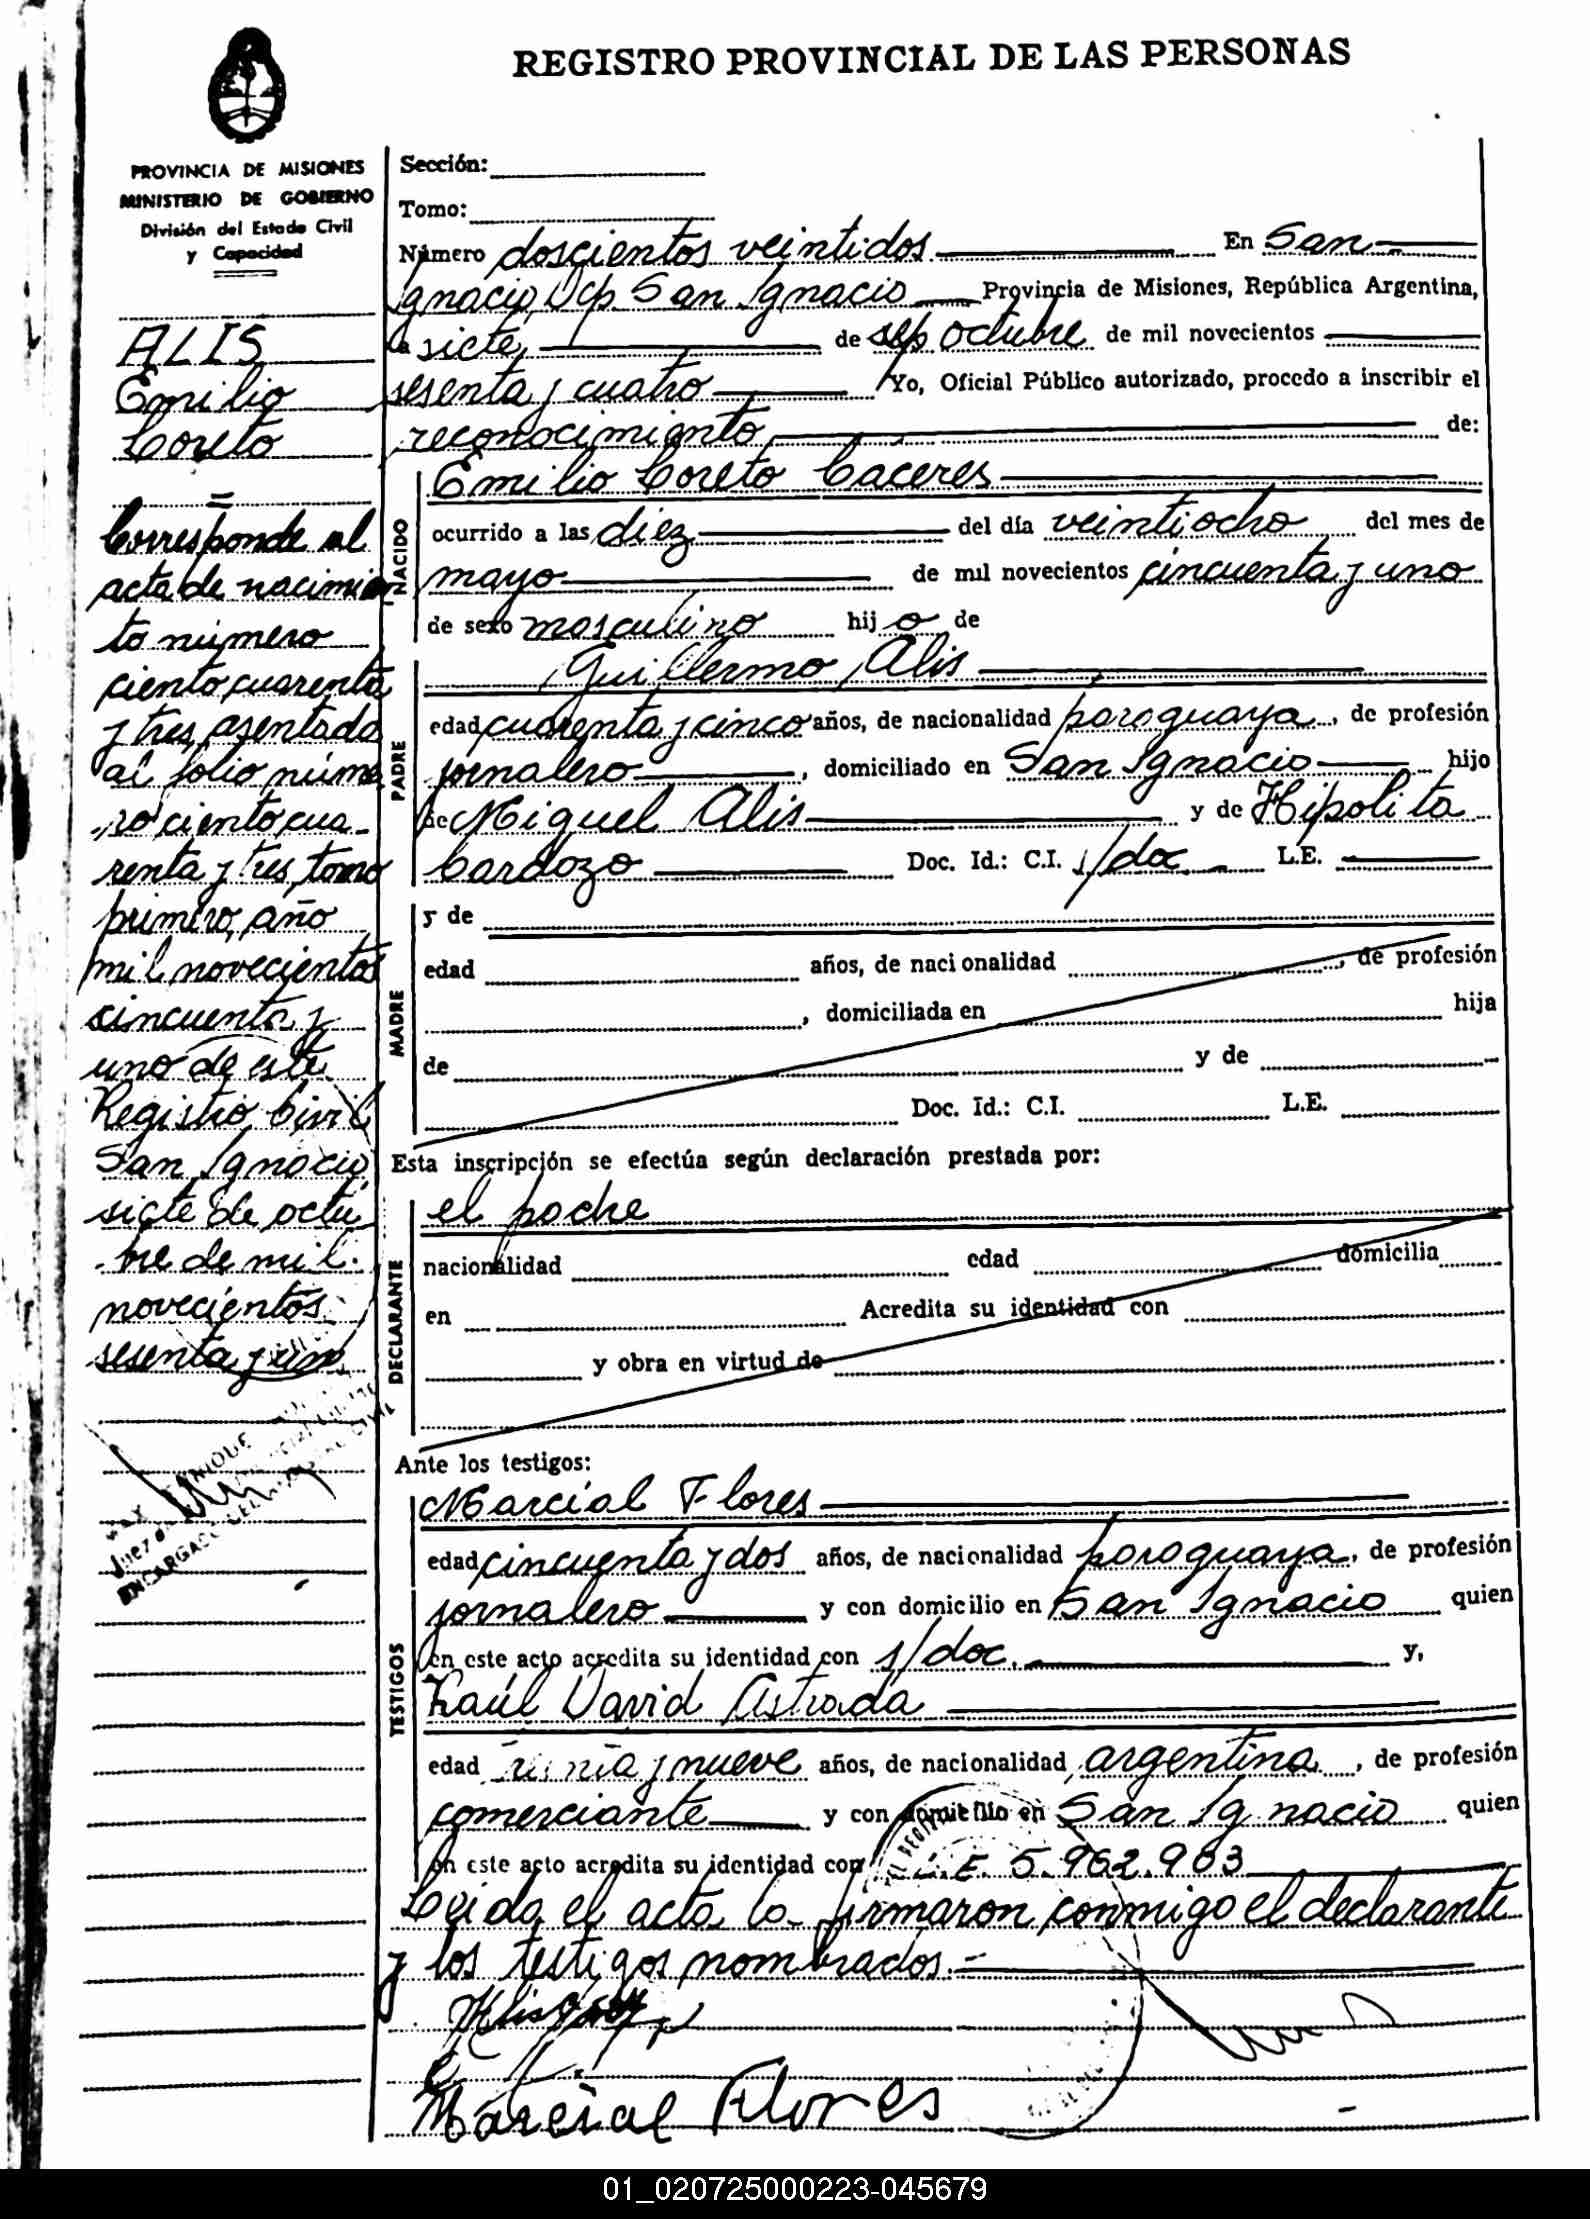 REGISTRO PROVINCIAL DE LAS PERSONAS
PROVINCIA DE MISIONES
MINISTERIO DE GOBIERNO
División del Estado Civil
y Capacidad
ALIS
Emilio
Loreto
=
Corresponde al
acta de nacimien
to número
ciento cuarenta
y tres, asentado
al folio núme
ro ciento cua-
renta y tres, tomo
primero, año
mil novecientos
cincuenta y
uno de este
Registro Civil
San Ignacio,
siete de octu
bre de mil
novecientos
sesenta y
Juez
ENCARGADO DEL
Sección:
Tomo:
Número doscientos veintidos En San
Ignacio, Dep. San Ignacio Provincia de Misiones, República Argentina,
a siete, de sep octubre de mil novecientos
sesenta y cuatro Yo, Oficial Público autorizado, procedo a inscribir el
reconocimiento de:
NACIDO
Emilio Loreto Caceres
ocurrido a las diez del día veintiocho del mes de
mayo de mil novecientos cincuenta y uno
de sexo masculino hijo de
PADRE
Guillermo Alis
edad cuarenta y cinco años, de nacionalidad paraguaya, de profesión
jornalero, domiciliado en San Ignacio hijo
de Miguel Alis y de Hipolita
Cardozo Doc. Id.: C.I. s/doc. L.E.
MADRE
y de
edad años, de nacionalidad, de profesión
, domiciliada en hija
de y de
Doc. Id.: C.I. L.E.
Esta inscripción se efectúa según declaración prestada por:
DECLARANTE
el padre
nacionalidad edad domicilia
en Acredita su identidad con
y obra en virtud de
Ante los testigos:
TESTIGOS
Marcial Flores
edad cincuenta y dos años, de nacionalidad paraguaya, de profesión
jornalero y con domicilio en San Ignacio quien
en este acto acredita su identidad con s/doc. y,
Raúl David Astrada
edad treinta y nueve años, de nacionalidad argentina, de profesión
comerciante y con domicilio en San Ignacio quien
en este acto acredita su identidad con L.E. 5.962.903
Leida el acta la firmaron conmigo el declarante
y los testigos nombrados.-
Marcial Flores
01_020725000223-045679